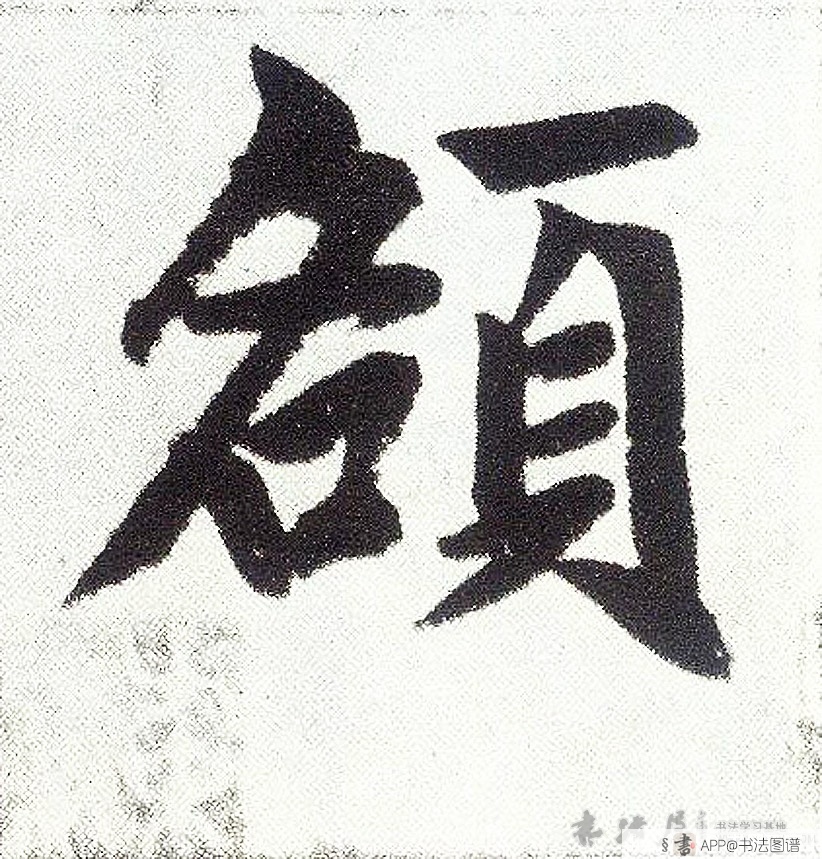 額
书法学习基地
§書 APP@书法图谱